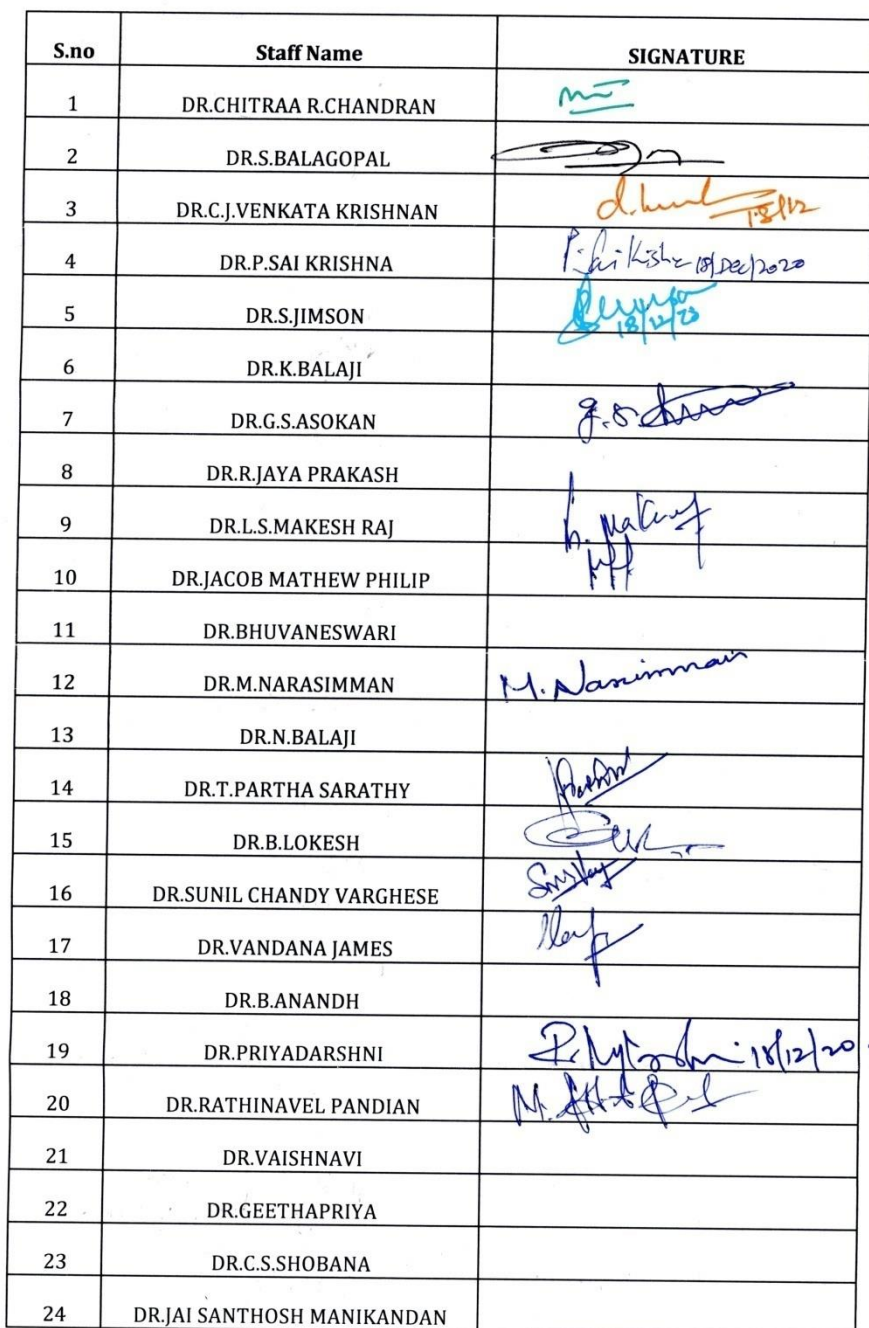 S.no Staff Name SIGNATURE
1 DR.CHITRAA R.CHANDRAN
2 DR.S.BALAGOPAL
3 DR.C.J.VENKATA KRISHNAN 18/12
4 DR.P.SAI KRISHNA P. Sai 18/Dec/2020
5 DR.S.JIMSON
18/12/20
6 DR.K.BALAJI
7 DR.G.S.ASOKAN g.s.
8 DR.R.JAYA PRAKASH
9 DR.L.S.MAKESH RAJ
10 DR.JACOB MATHEW PHILIP
11 DR.BHUVANESWARI
12 DR.M.NARASIMMAN M. Narasimman
13 DR.N.BALAJI
14 DR.T.PARTHA SARATHY
15 DR.B.LOKESH
16 DR.SUNIL CHANDY VARGHESE
17 DR.VANDANA JAMES
18 DR.B.ANANDH
19 DR.PRIYADARSHNI 18/12/20
20 DR.RATHINAVEL PANDIAN M.
21 DR.VAISHNAVI
22 DR.GEETHAPRIYA
23 DR.C.S.SHOBANA
24 DR.JAI SANTHOSH MANIKANDAN